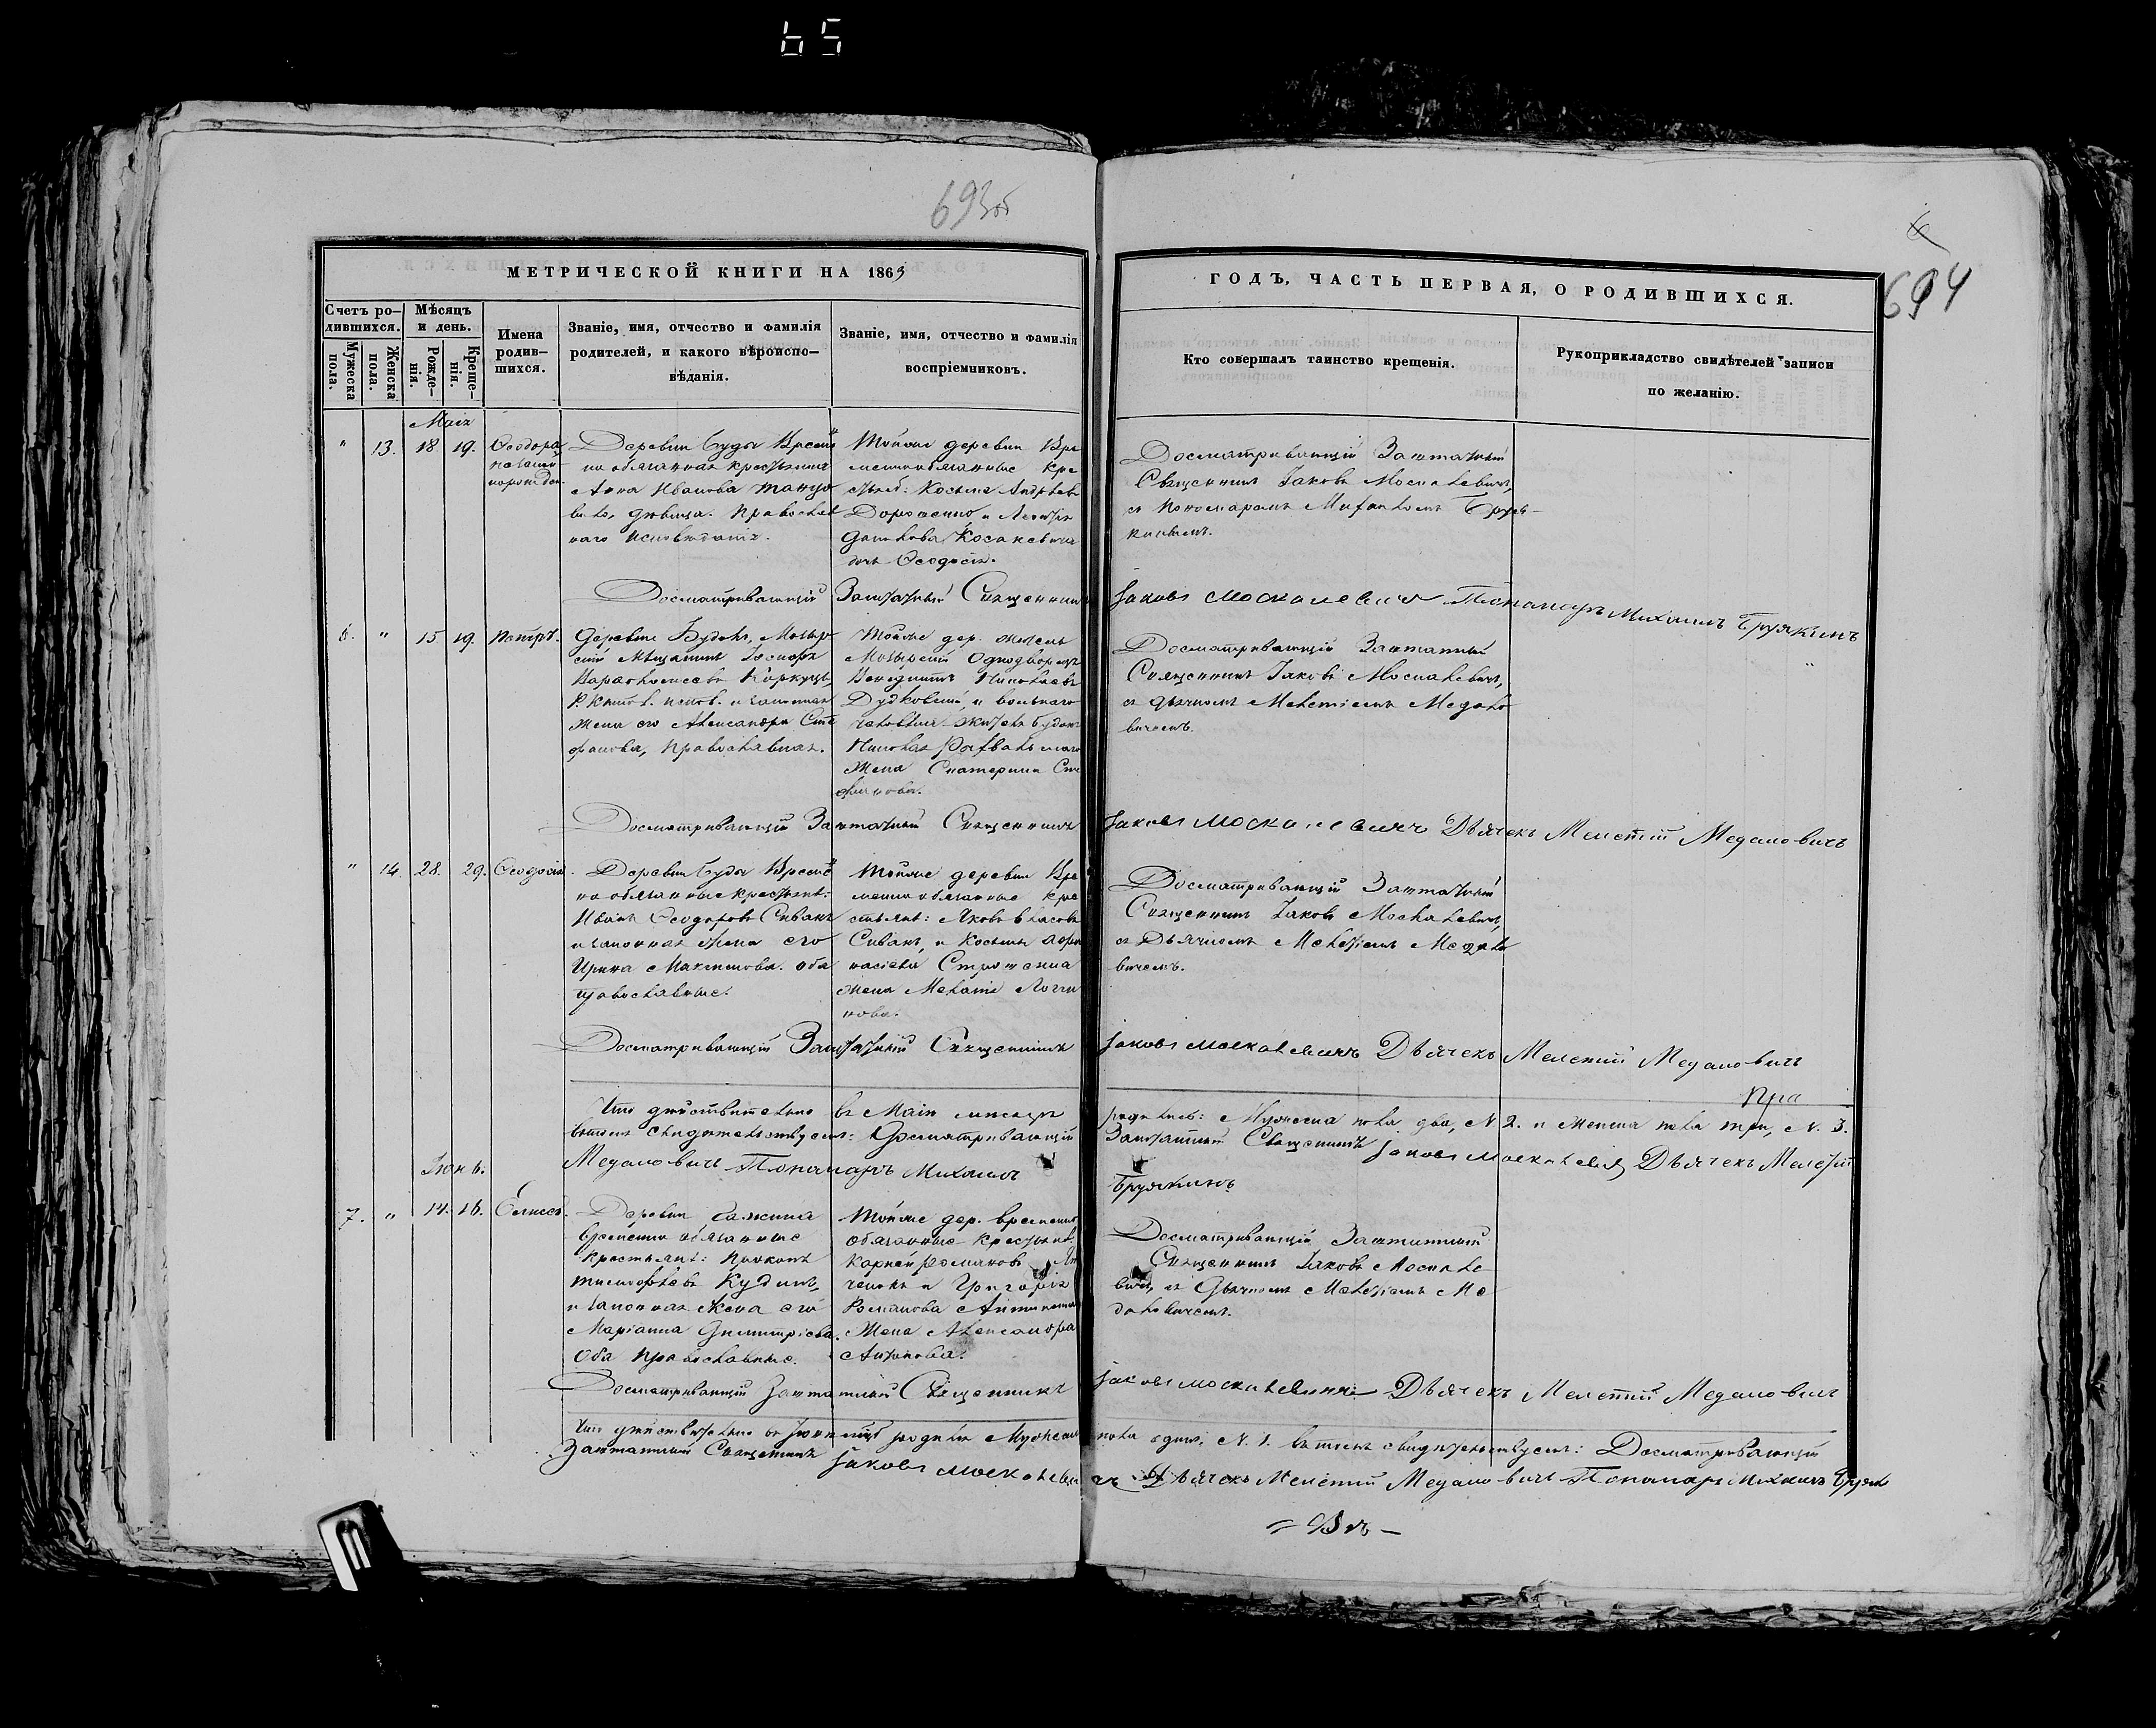 65
693об
6
694
МЕТРИЧЕСКОЙ КНИГИ НА 1863
ГОДЪ, ЧАСТЬ ПЕРВАЯ, О РОДИВШИХСЯ.
Счетъ ро-
дившихся.
Мѣсяцъ
и день.
Мужеска
пола.
Женска
пола.
Рожде-
нія.
Креще-
нія.
Имена
родив-
шихся.
Званіе, имя, отчество и фамилія
родителей, и какого вѣроиспо-
вѣданія.
Званіе, имя, отчество и фамилія
воспріемниковъ.
Кто совершалъ таинство крещенія.
Рукоприкладство свидѣтелей записи
по желанію.
Маія
" 13. 18 19. Ѳеодора
Деревни Буды Времен
но обязанная крестьянка
Анна Иванова
вна, дѣвица. Православ
наго исповѣданія.
Тойже деревни Вре
менно обязанные кре
стьян: Косьма Андреевъ
Дорошенко, и Леонтія
Данилова Косакевича
дочь Ѳеодосія.
Досматривающій Заштатный
Священникъ Іаковъ Москалевичъ,
съ Пономаремъ Михаиломъ Бруя-
кинымъ.
Досматривающій Заштатный Священникъ Іаковъ Москалевичъ Пономарь Михаилъ Бруякинъ
6. " 15 19. Петръ.
Деревни Будокъ, Мозыр
скій мѣщанинъ Іосифъ
Варѳоломеевъ Коркуць,
Р Катол. испов. и законная
жена его Александра Сте
фанова, православная.
Тойже дер. житель
Мозырскій Однодворецъ
Венедиктъ Николаевъ
Дудковскій, и вольнаго
человѣка житель Будокъ
Николая
жена Екатерина Сте
фанова.
Досматривающій Заштатный
Священникъ Іаковъ Москалевичъ,
съ Дьячкомъ Мелетіемъ Медало
вичемъ.
Досматривающій Заштатный Священникъ Іаковъ Москалевичъ Дьячекъ Мелетій Медаловичъ
" 14. 28. 29. Ѳеодосія.
Деревни Буды Времен
но обязанные крестьян:
Иванъ Ѳеодоровъ Сивакъ
и законная жена его
Ирина Максимова. оба
православные.
Тойже деревни Вре
менно обязанные кре
стьян: Яковъ Власовъ
Сивакъ, и Косьмы Аѳа
насіева
жена Меланія Логги
нова.
Досматривающій Заштатный
Священникъ Іаковъ Москалевичъ,
съ Дьячкомъ Мелетіемъ Медало
вичемъ.
Досматривающій Заштатный Священникъ Іаковъ Москалевичъ Дьячекъ Мелетій Медаловичъ
Что дѣйствительно въ Маіи мѣсяцѣ родились: Мужеска пола два, N 2. и Женска пола три, N. 3.
въ томъ свидѣтельствуемъ: Досматривающій Заштатный Священникъ Іаковъ Москалевичъ Дьячекъ Мелетій
Медаловичъ Пономарь Михаилъ Бруякинъ
Іюнь.
7. " 14. 16. Елисей.
Деревни
временно обязанные
крестьян: Прокопъ
Тимофѣевъ Кудинъ,
и законная жена его
Маріанна Димитріева.
Оба православные.
Тойже дер. временно
обязанные крестьян:
Карпъ Романовъ
и Григорія
Романова
жена Александра
Антонова.
Досматривающій Заштатный
Священникъ Іаковъ Москале
вичъ, съ Дьячкомъ Мелетіемъ Ме
даловичемъ.
Досматривающій Заштатный Священникъ Іаковъ Москалевичъ Дьячекъ Мелетій Медаловичъ
Что дѣйствительно въ Іюнѣ родился Мужеска пола одинъ, N. 1. въ томъ свидѣтельствуемъ: Досматривающій
Заштатный Священникъ Іаковъ Москалевичъ Дьячекъ Мелетій Медаловичъ Пономарь Михаилъ